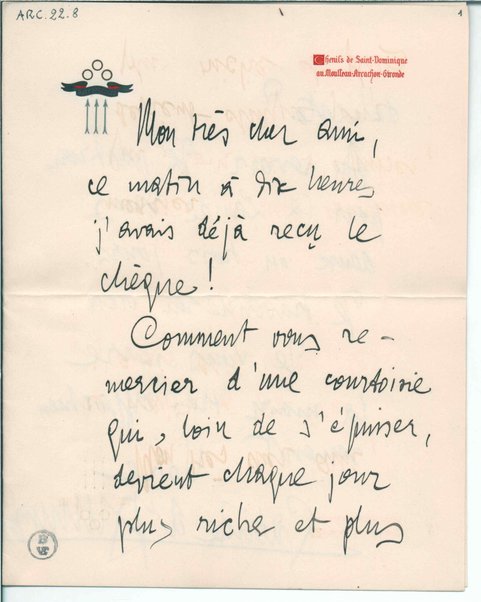 ARC. 22. 8
1
Chenils de Saint-Dominique
au Moulleau-Arcachon-Gironde
Mon très cher ami,
ce matin à dix heures
j'avais déjà reçu le
chèque!
Comment vous re-
mercier d'une courtoisie
qui, loin de s'épuiser,
devient chaque jour
plus riche et plus